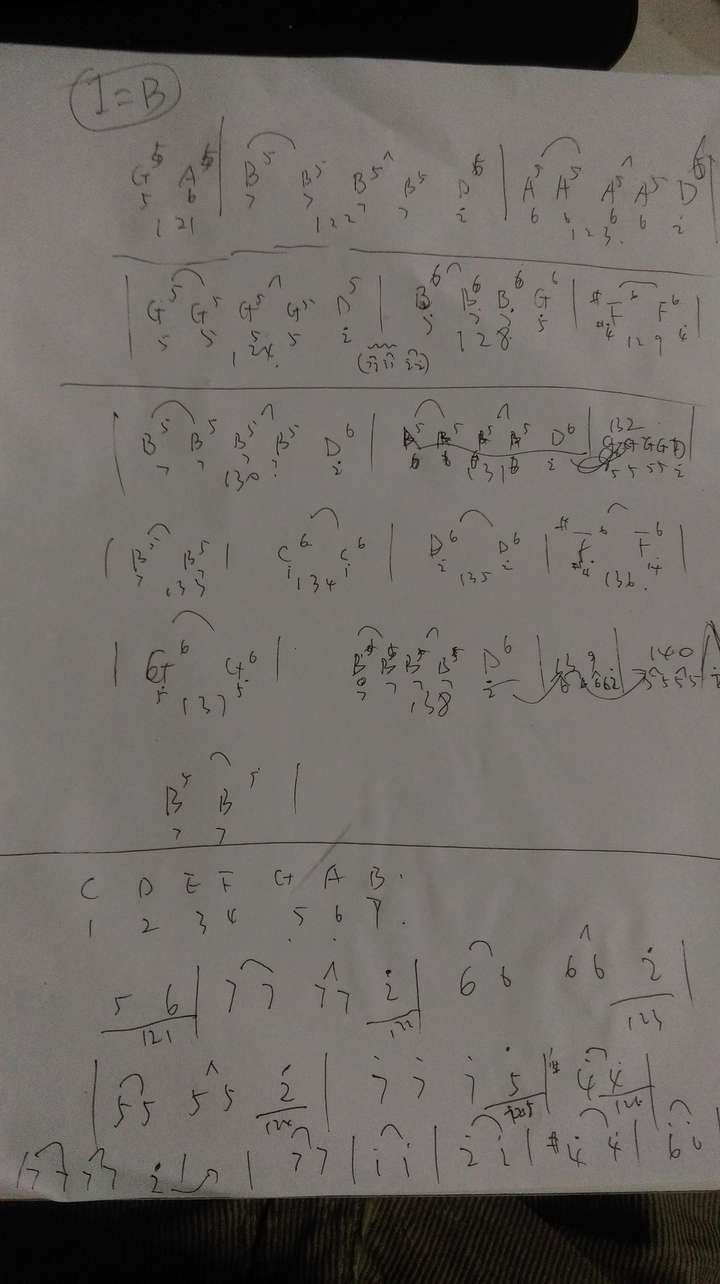 1=B
G⁵ A⁵ | B⁵ B⁵ B⁵ B⁵ D⁶ | A⁵ A⁵ A⁵ A⁵ D⁶ |
5 6 7 7 7 7 i 6 6 6 6 i
121 122 123.
| G⁵ G⁵ G⁵ G⁵ D⁵ | B⁶ B⁶ B⁶ G⁶ | #F⁶ F⁶ |
5 5 5 5 i 5 7 7 5 #4 4
124. 128. 129
| B⁵ B⁵ B⁵ B⁵ D⁶ | B⁵ B⁵ B⁵ B⁵ D⁶ | 132
7 7 7 7 i 6 6 6 6 i 5 5 5 5 i
130 131
| B⁵ B⁵ | C⁶ C⁶ | D⁶ D⁶ | #F⁶ F⁶ |
7 7 i i i i #4 #4
133 134 135 136.
| G⁶ G⁶ | B⁵ B⁵ B⁵ B⁵ D⁶ | 139 | 140
5 5 7 7 7 7 i
137 138
B⁵ B⁵ |
7 7
C D E F G A B.
1 2 3 4 5 6 7.
5 6 | 7 7 7 7 i | 6 6 6 6 i |
121 122 123
| 5 5 5 5 2 | 7 7 7 5 | #4 4 |
124 125 126
| 7 7 7 7 i | | 7 7 | i i | 2 2 | #4 4 | 6 6 |